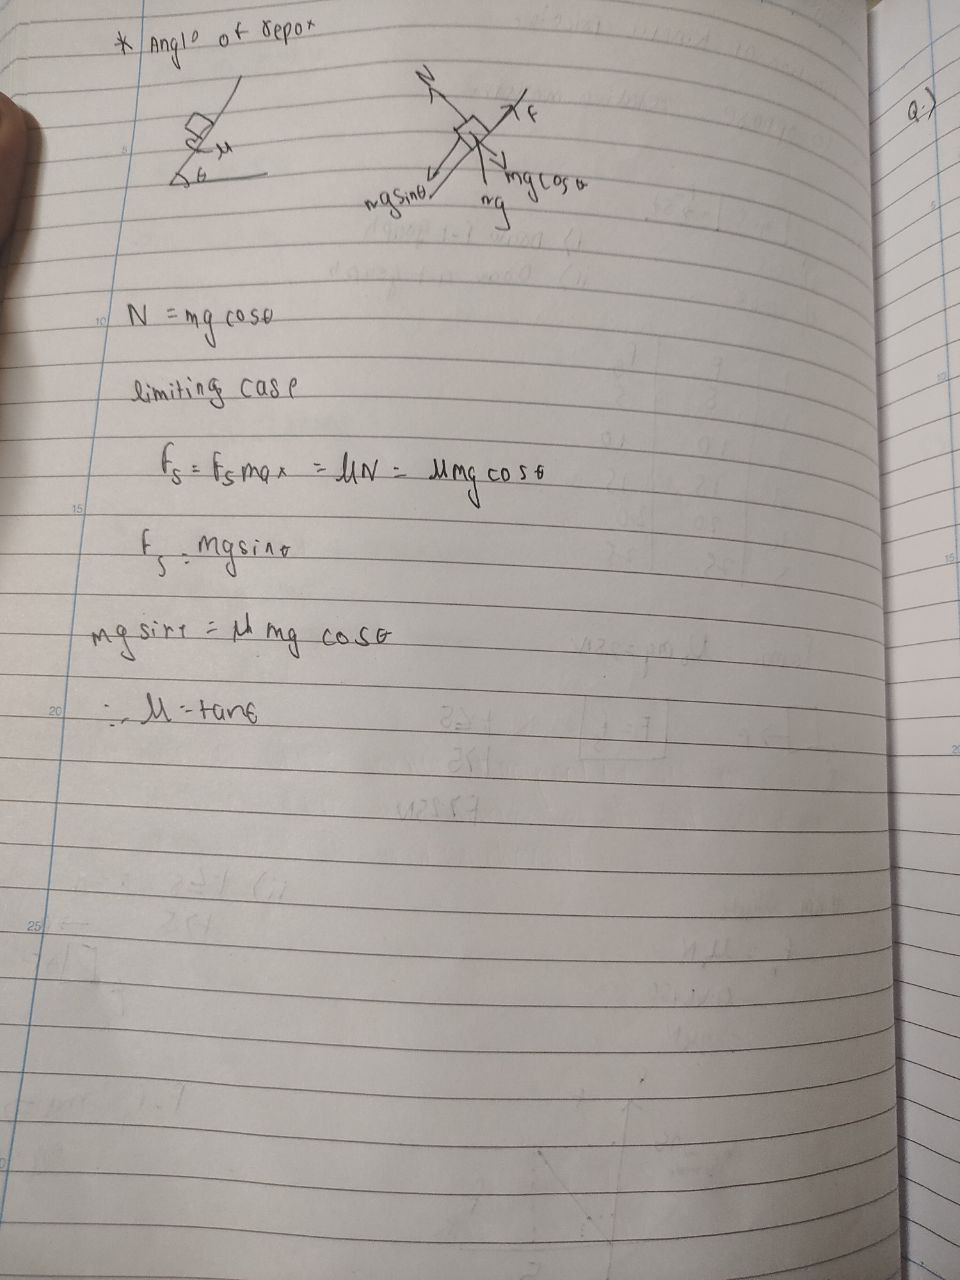 * Angle of repox
N
F
μ
θ
mg cosθ
mgsinθ
mg
Q.)
N = mg cosθ
limiting case
fs = fs max = μN = μmg cosθ
fs = mgsinθ
mg sinθ = μ mg cosθ
∴ μ = tanθ
5
10
15
20
25
15